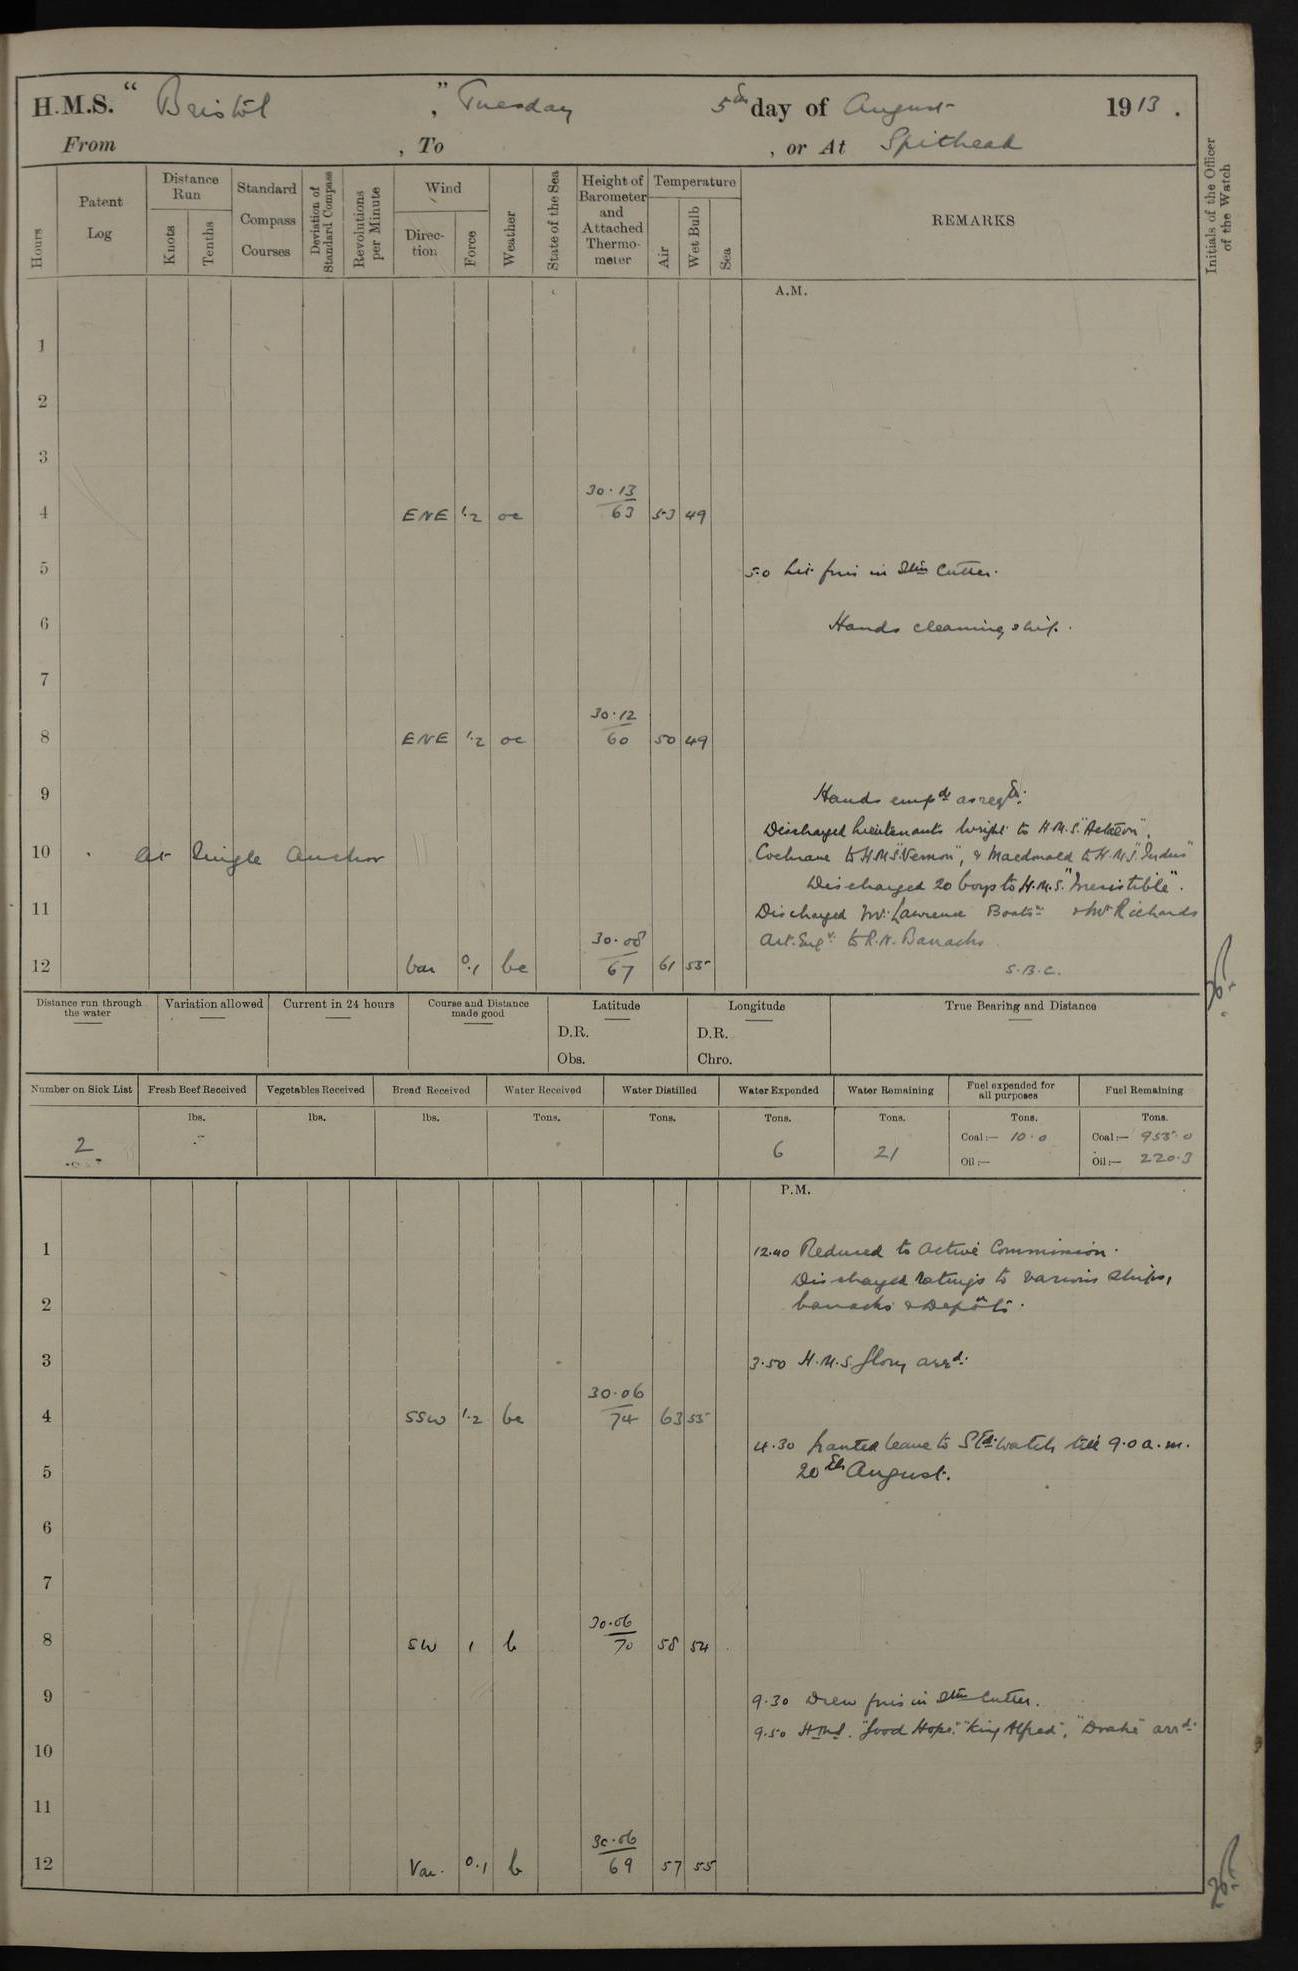 H.M.S. "Bristol", Tuesday 5th day of August 1913.
From , To , or At Spithead
Hours
Patent Log
Distance Run
Knots
Tenths
Standard Compass Courses
Deviation of Standard Compass
Revolutions per Minute
Wind
Direc-tion
Force
Weather
State of the Sea
Height of Barometer and Attached Thermo-meter
Temperature
Air
Wet Bulb
Sea
REMARKS
Initials of the Officer of the Watch
A.M.
1
2
3
4 ENE 1.2 oc 30.13 63 53 49
5 5.0 Lit fires in Stm Cutter.
6 Hands cleaning ship.
7
8 ENE 1.2 oc 30.12 60 50 49
9 Hands empd as reqd.
Discharged Lieutenants Wright to H.M.S. "Actaeon",
10 At Single Anchor Cochrane to H.M.S. "Vernon", & Macdonald to H.M.S. "Indus"
Discharged 20 boys to H.M.S. "Irresistible".
11 Discharged Mr. Lawrence Boatsn & Mr Richards
Art. Engr. to R.N. Barracks
12 var 0.1 bc 30.08 67 61 55 S.B.C.
Distance run through the water
Variation allowed
Current in 24 hours
Course and Distance made good
Latitude
D.R.
Obs.
Longitude
D.R.
Chro.
True Bearing and Distance
Number on Sick List
Fresh Beef Received
Vegetables Received
Bread Received
Water Received
Water Distilled
Water Expended
Water Remaining
Fuel expended for all purposes
Fuel Remaining
lbs. lbs. lbs. Tons. Tons. Tons. Tons. Tons. Tons.
2 6 21 Coal:— 10.0 Coal:— 955.0
Oil:— Oil:— 220.3
P.M.
1 12.40 Reduced to Active Commission.
Discharged ratings to various ships,
2 barracks & Depôts.
3 3.50 H.M.S. Glory arrd.
4 SSW 1.2 bc 30.06 74 63 55
4.30 Granted leave to Std. watch till 9.0 a.m.
5 20th August.
6
7
8 SW 1 b 30.06 70 58 54
9 9.30 Drew fires in Stm Cutter.
9.50 H.M.S. "Good Hope" "King Alfred", "Drake" arrd.
10
11
12 Var. 0.1 b 30.06 69 57 55